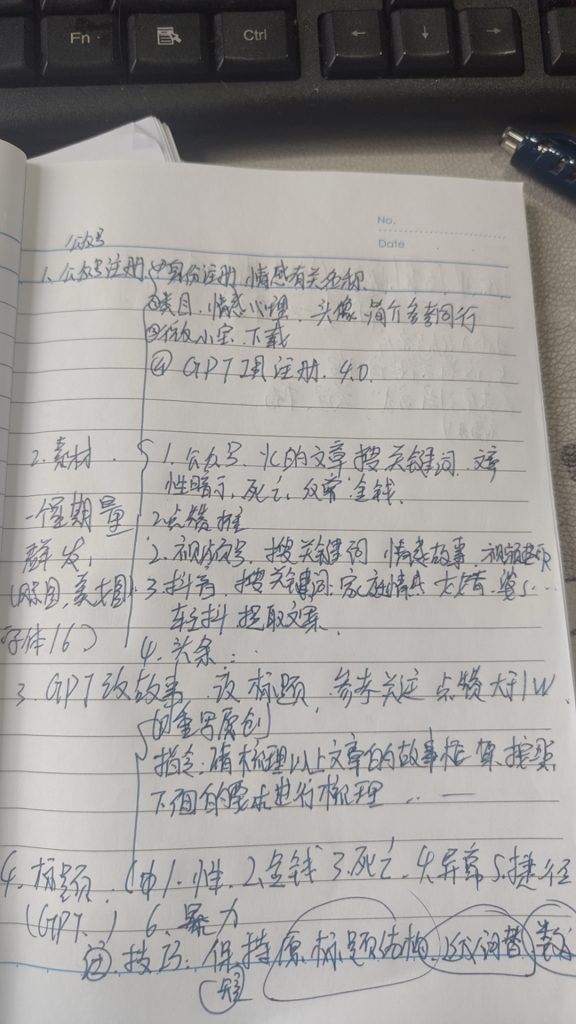 Fn
Ctrl
←
↓
→
No.
Date
公众号
1. 公众号注册 ①身份注册 情感有关名称
②类目. 情感心理. 头像 简介参考同行
③ 小宝 下载
④ GPT 注册. 4.0.
2. 素材. 1. 公众号. 火的文章 搜关键词.
性暗示, 死亡, 金钱.
一个星期量 2. 点赞 推
群发, 2. 视频号, 搜关键词 情感故事
3. 抖音. 搜关键词 家庭情感
字体16) 轻抖 提取文案.
4. 头条..
3. GPT改故事 改标题, 参考关注 点赞大于1W
的重写原创
指令: 请梳理以上文章的故事框架, 按照
下面的要求进行梳理 .. —
4. 标题. 1. 性. 2. 金钱 3. 死亡. 4. 异常 5. 捷径
(GPT.) 6. 暴力
技巧: 保持原标题结构, 近义词替